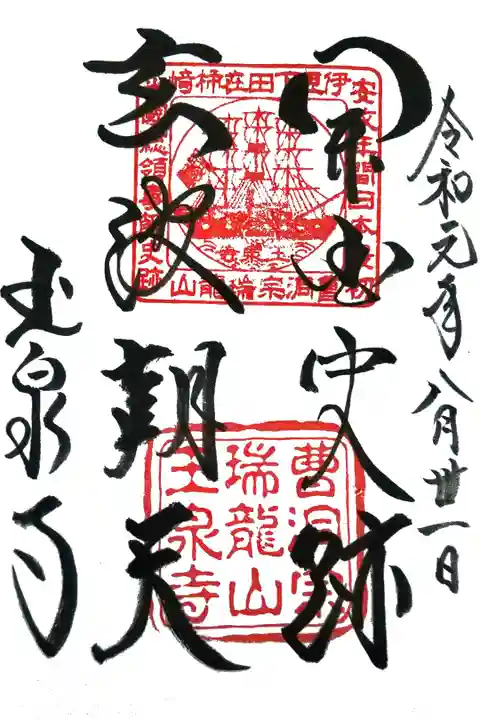 令和元年八月丗一日
開国史跡
玄波朝天
玉泉寺
安政年間日本最初
伊豆下田在柿﨑
米國總領事館史跡
曹洞宗瑞龍山
玉泉寺
曹洞宗
瑞龍山
玉泉寺